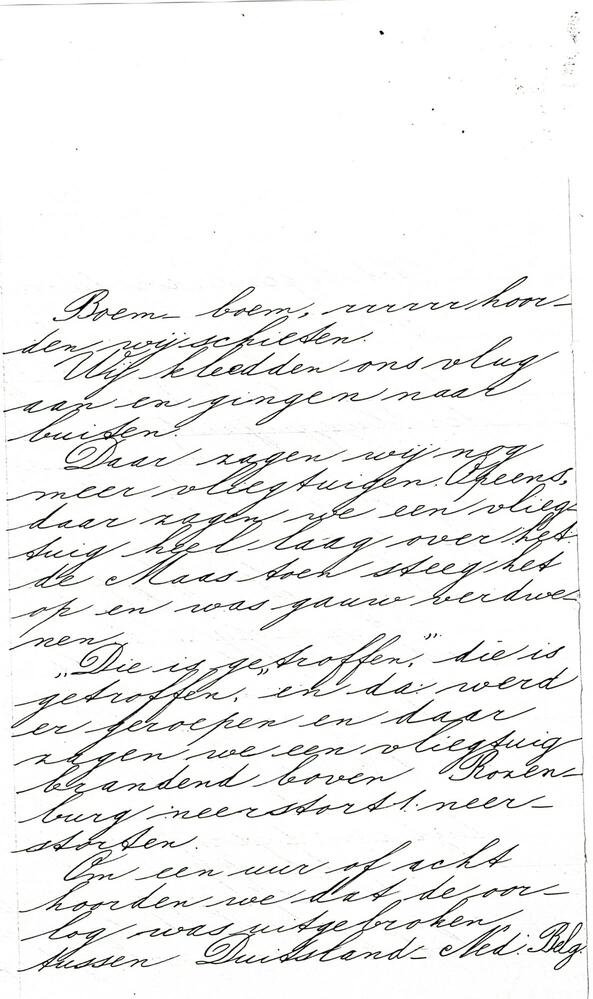 Boem- boem, rrrrrr hoor-
den wij schieten.
Wij kleedden ons vlug
aan en gingen naar
buiten.
Daar zagen wij nog
meer vliegtuigen. Opeens,
daar zagen we een vlieg-
tuig heel laag over het
de Maas toen steeg het
op en was gauw verdwe-
nen.
„Die is getroffen," die is
getroffen," en da: werd
er geroepen en daar
zagen we een vliegtuig
brandend boven Rozen-
burg neerstort! neer-
storten.
Om een uur of acht
hoorden we dat de oor-
log was uitgebroken
tussen Duitsland- Ned: Belg.